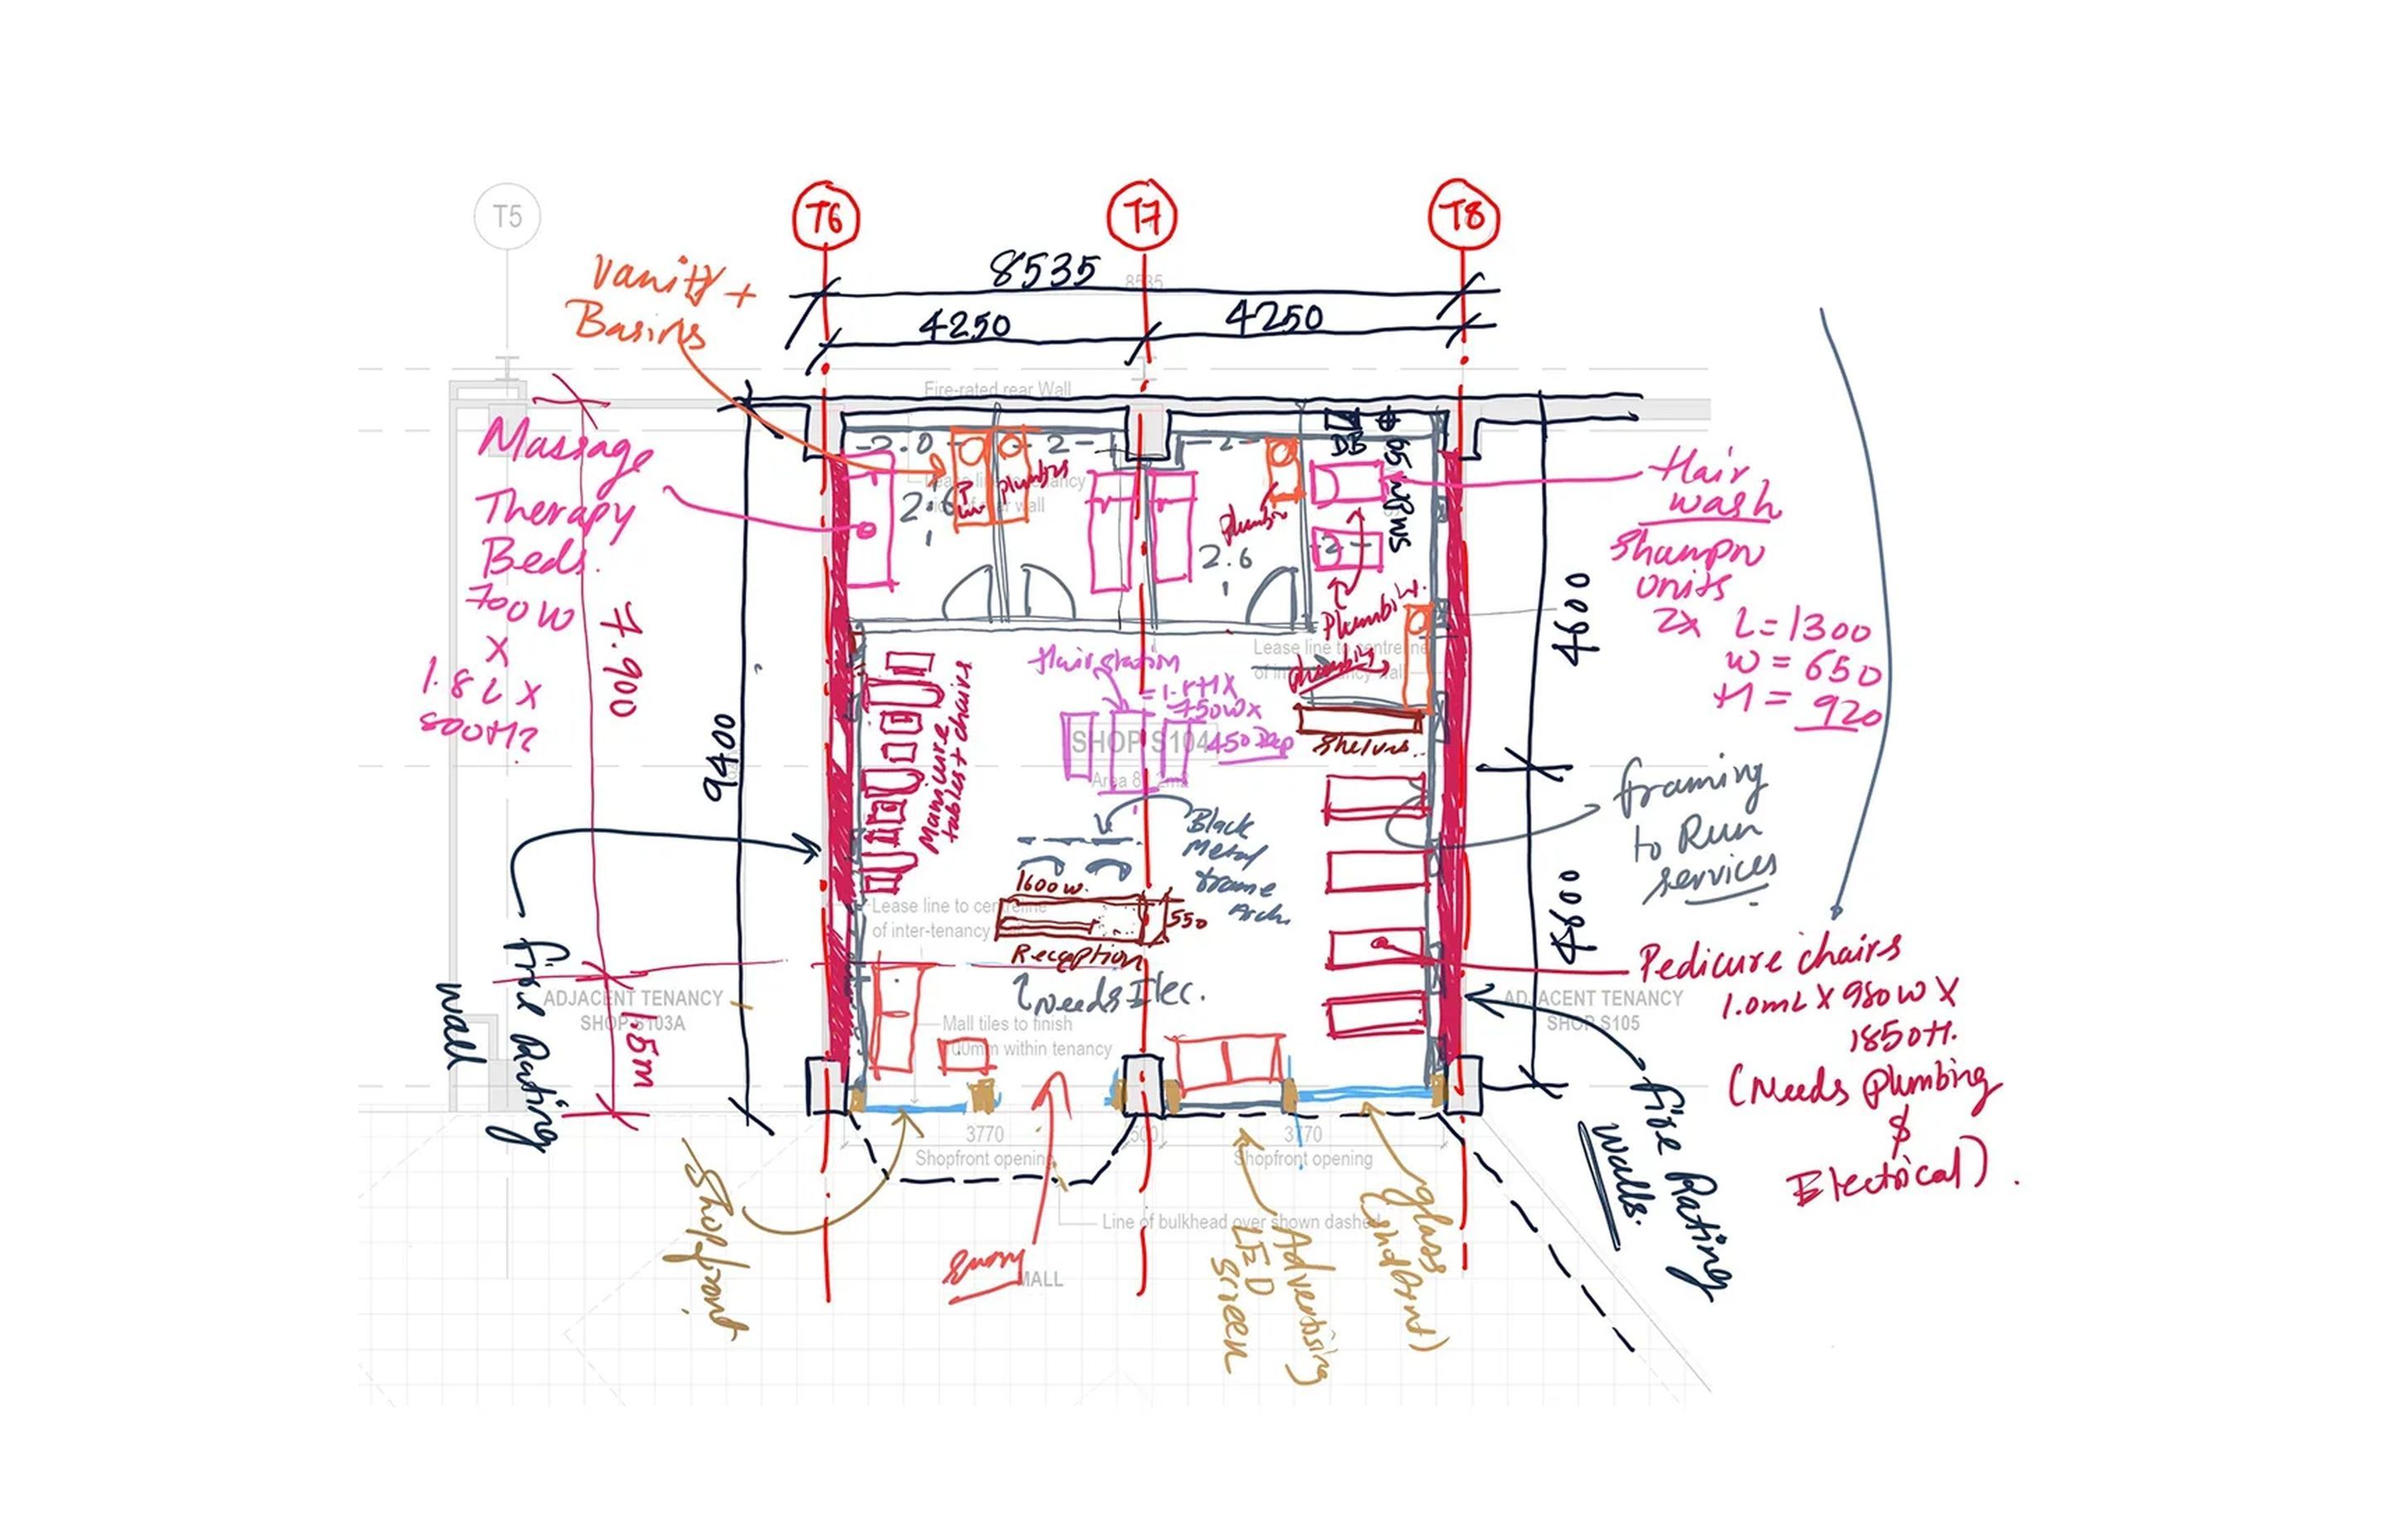 T5
T6
T7
T8
8535
8535
4250
4250
Vanity +
Basins
Fire-rated rear Wall
Massage
Therapy
Beds.
700W
X
1.8 L X
7.900
9400
-2.0
2
-2-
DB
SMSB 50
Plumbing
2.6
2.6
-2-
Plumbing
Plumbing.
Plumbing
Hair
wash
Shampn
Units
2x L=1300
W = 650
H = 920
4600
4800
Lease line to centreline
Hair station
750W x
450 Dep
SHOP S104
Shelves.
Manicure
tables + chairs
Black
Metal
frame
Arch.
framing
to Run
services
1600w.
550
Reception
Needs Elec.
Lease line to centreline
of inter-tenancy
Pedicure chairs
1.0mL X 980W X
1850H.
(Needs Plumbing
&
Electrical).
ADJACENT TENANCY
SHOP S103A
ADJACENT TENANCY
SHOP S105
1.5m
Fire Rating
wall
Fire Rating
Walls.
Mall tiles to finish
within tenancy
3770
500
3770
Shopfront opening
Shopfront opening
Line of bulkhead over shown dashed
Shopfront
MALL
Advertising
LED
Screen
glass